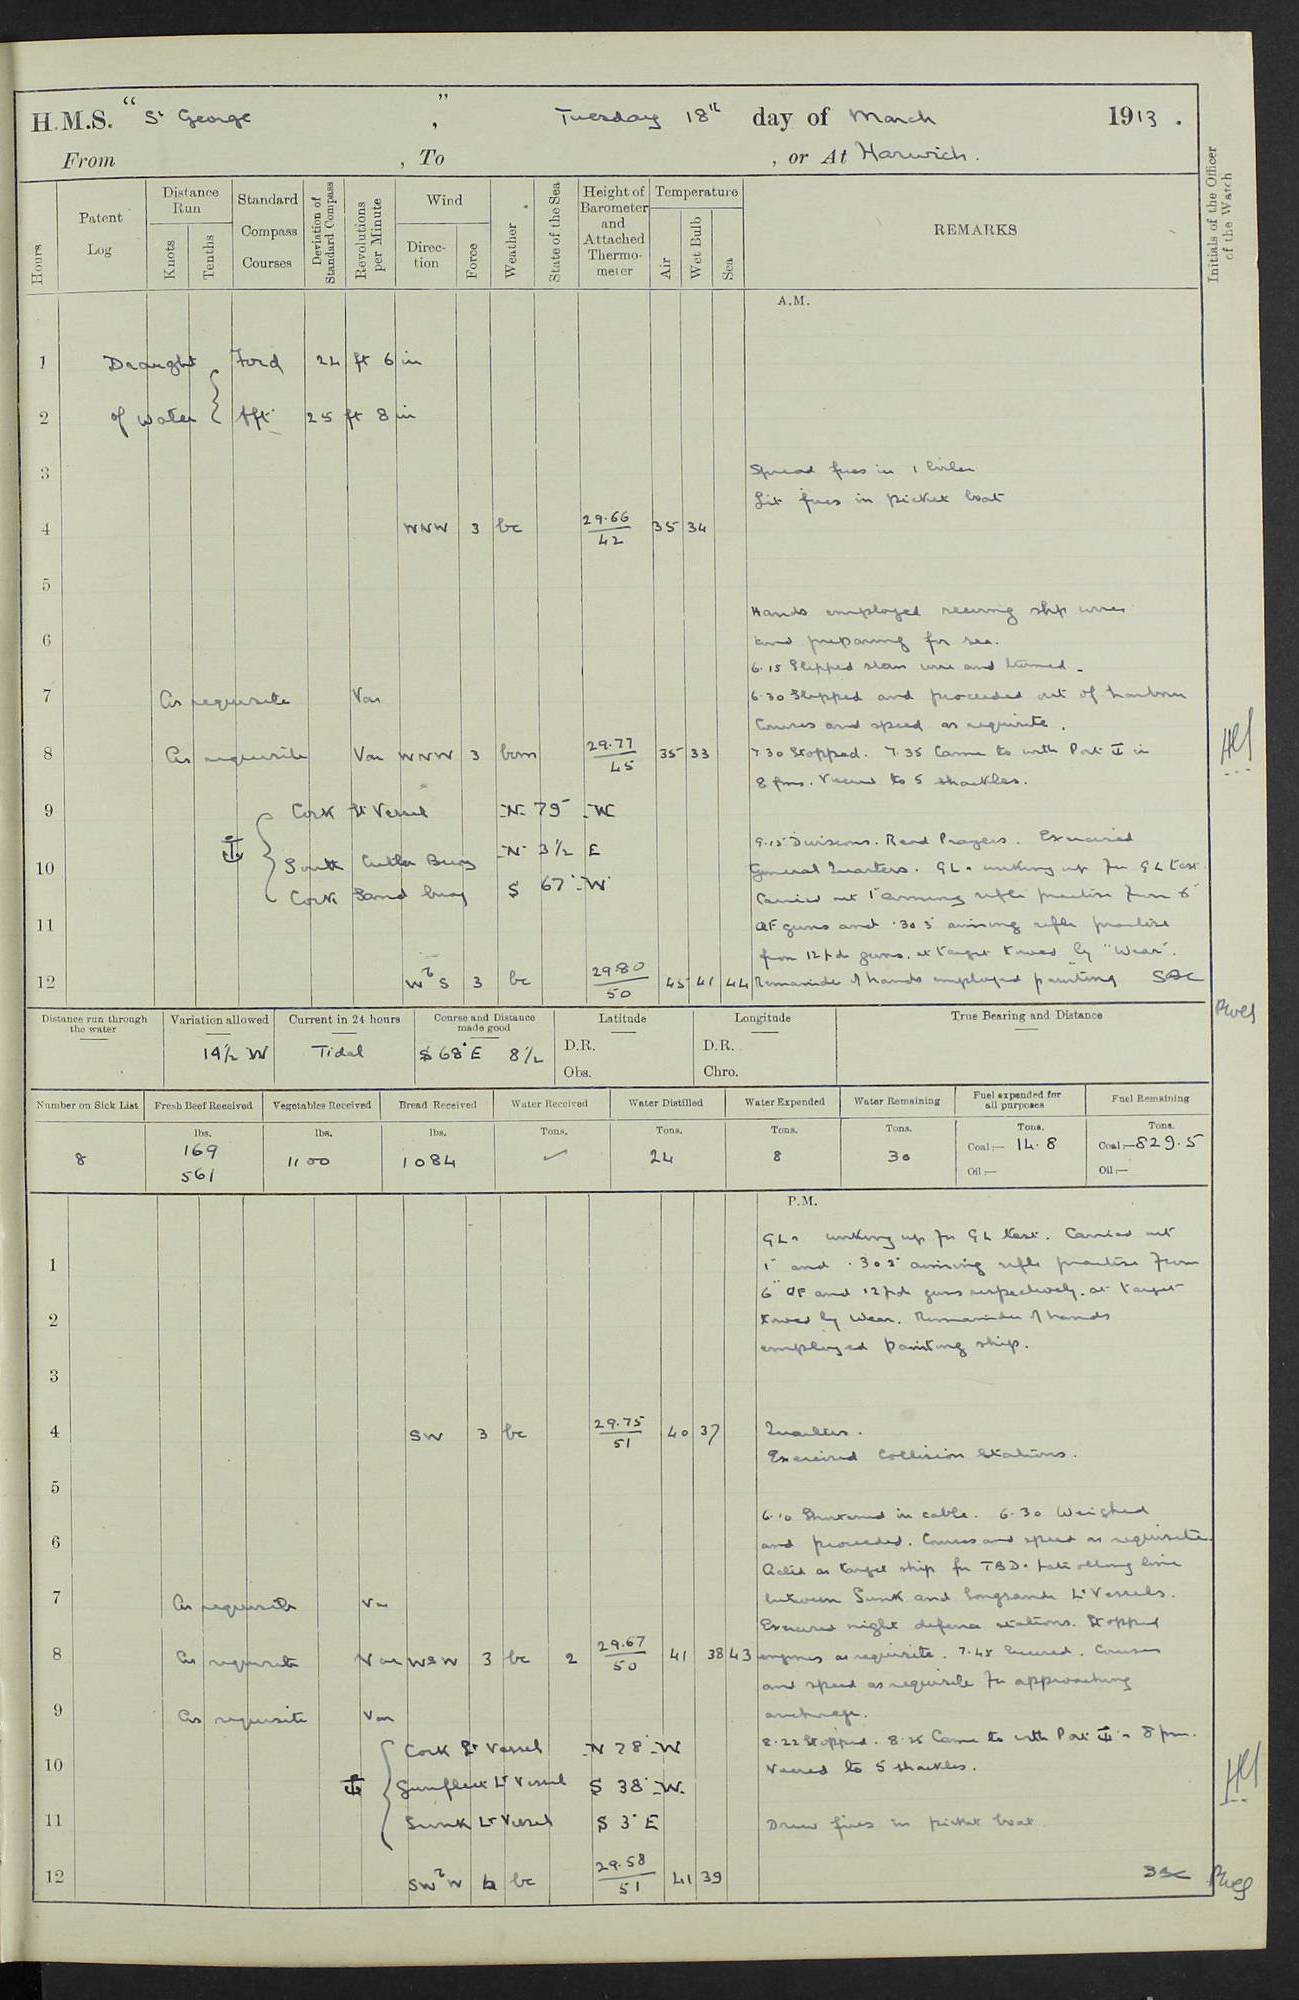 H.M.S. " St George " , Tuesday 18th day of March 1913 .
From , To , or At Harwich .
Hours
Patent Log
Distance Run
Knots
Tenths
Standard Compass Courses
Deviation of Standard Compass
Revolutions per Minute
Wind
Direction
Force
Weather
State of the Sea
Height of Barometer and Attached Thermometer
Temperature
Air
Wet Bulb
Sea
REMARKS
Initials of the Officer of the Watch
A.M.
1 Draught Ford 24 ft 6 in
2 of water Aft 25 ft 8 in
3 Spread fires in 1 boiler
Lit fires in picket boat
4 WNW 3 bc 29.66 42 35 34
5
Hands employed reeving slip wires
6 and preparing for sea.
6.15 Slipped stern wire and turned
7 As requisite Var 6.30 Slipped and proceeded out of harbour
Courses and speed as requisite.
8 As requisite Var WNW 3 bcm 29.77 45 35 33 7.30 Stopped. 7.35 Came to with Port ⚓ in
8 fms. Veered to 5 shackles.
9 Cork Lt Vessel N 75 W
9.15 Divisions. Read Prayers. Exercised
⚓ South Cutler Buoy N 3½ E
10 General Quarters. GLs working up for GL test.
Cork Sand buoy S 67° W
Carried out 1" aiming rifle practice from 6"
11 QF guns and .303 aiming rifle practice
from 12 pdr guns. at target towed by "Wear".
12 WbS 3 bc 29.80 50 45 41 44 Remainder of hands employed painting
Distance run through the water
Variation allowed
Current in 24 hours
Course and Distance made good
Latitude
Longitude
True Bearing and Distance
14½ W Tidal S 68° E 8½
D.R. D.R.
Obs. Chro.
Number on Sick List
Fresh Beef Received
Vegetables Received
Bread Received
Water Received
Water Distilled
Water Expended
Water Remaining
Fuel expended for all purposes
Fuel Remaining
lbs. lbs. lbs. Tons. Tons. Tons. Tons. Tons. Tons.
8 169 561 1100 1084 ✓ 24 8 30 Coal:— 14.8 Coal:— 829.5
Oil:— Oil:—
P.M.
GLs working up for GL test. Carried out
1 1" and .303 aiming rifle practice from
6" QF and 12 pdr guns respectively. at target
2 towed by Wear. Remainder of hands
employed painting ship.
3
4 SW 3 bc 29.75 51 40 37 Quarters.
Exercised Collision Stations.
5
6.10 Shortened in cable. 6.30 Weighed
6 and proceeded. Courses and speed as requisite.
Acted as target ship for TBD
7 As requisite Var between Sunk and Longsand Lt Vessels.
Exercised night defence stations. Stopped
8 As requisite Var WSW 3 bc 2 29.67 50 41 38 43 engines as requisite. 7.45 Secured. Courses
and speed as requisite for approaching
9 As requisite Var anchorage.
Cork Lt Vessel N 78° W 8.22 Stopped. 8.25 Came to with Port ⚓ 8 fms.
10 Veered to 5 shackles.
⚓ Gunfleet Lt Vessel S 38° W
11 Sunk Lt Vessel S 3° E Drew fires in picket boat
12 SWbW 4 bc 29.58 51 41 39